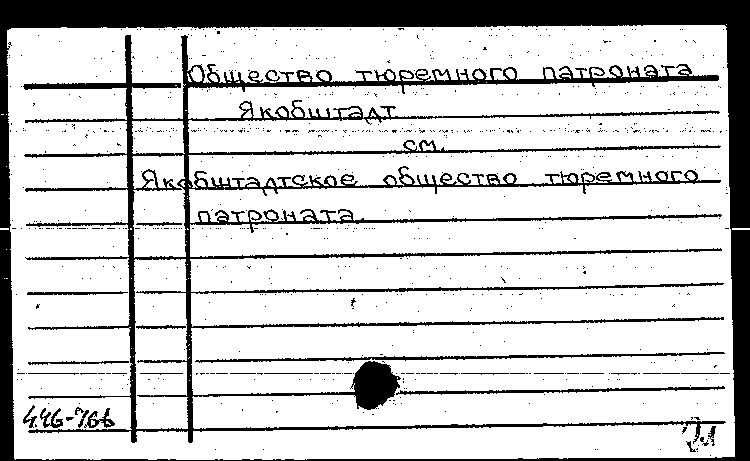 Общество тюремного патроната
Якобштадт
см.
Якобштадтское общество тюремного
патроната.